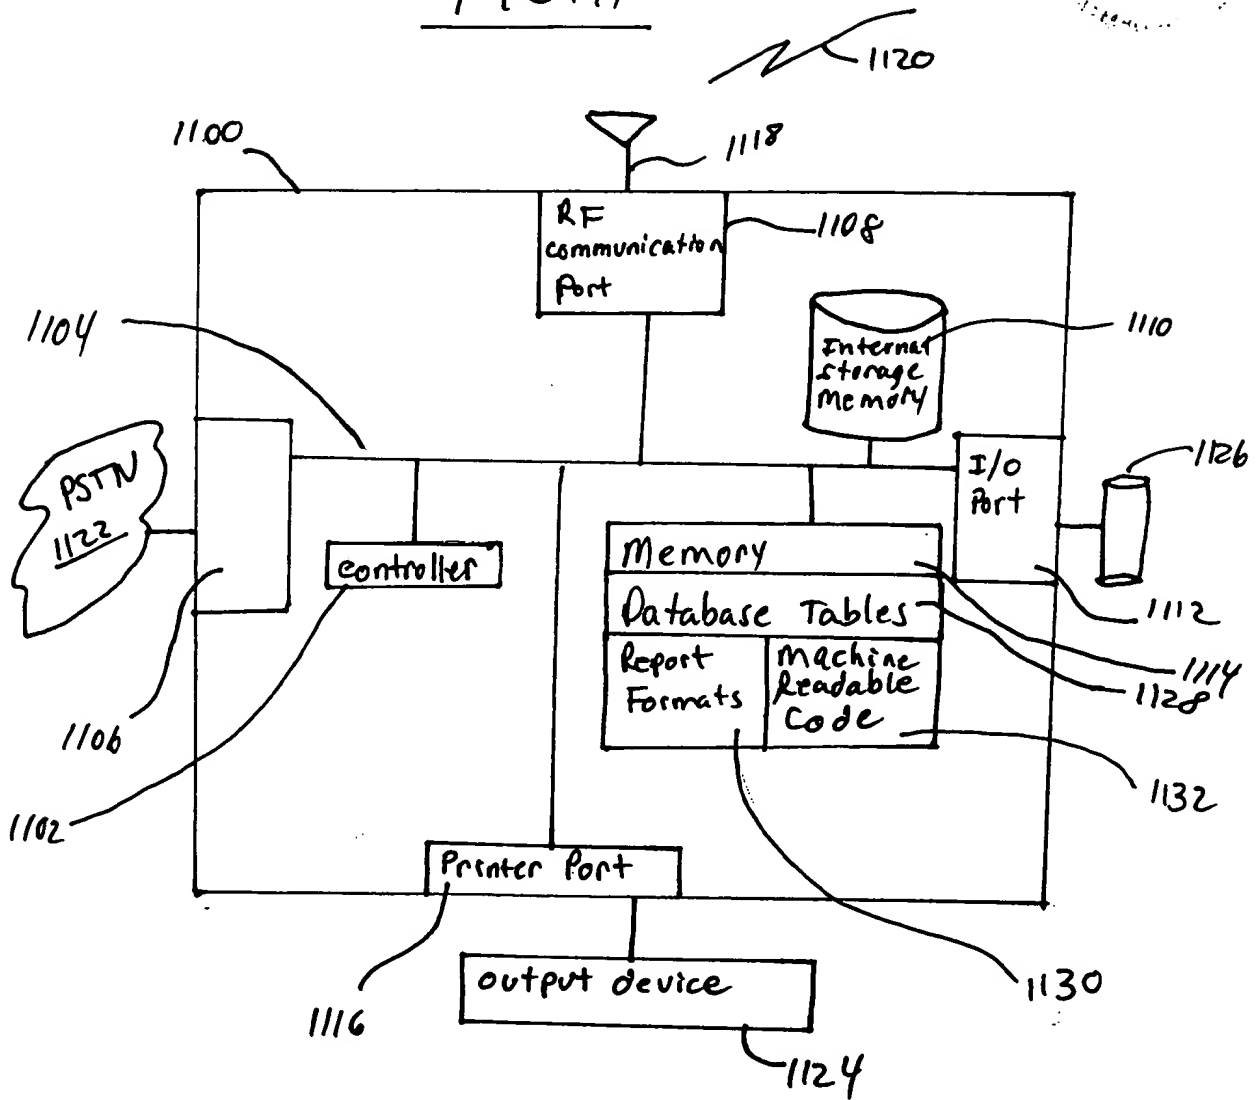 1120
1100
1118
RF
communication
Port
1108
1104
1110
Internal
storage
Memory
PSTN
1122
I/O
Port
1126
controller
Memory
Database Tables
1112
Report
Formats
Machine
Readable
Code
1114
1128
1106
1132
1102
Printer Port
output device
1130
1116
1124